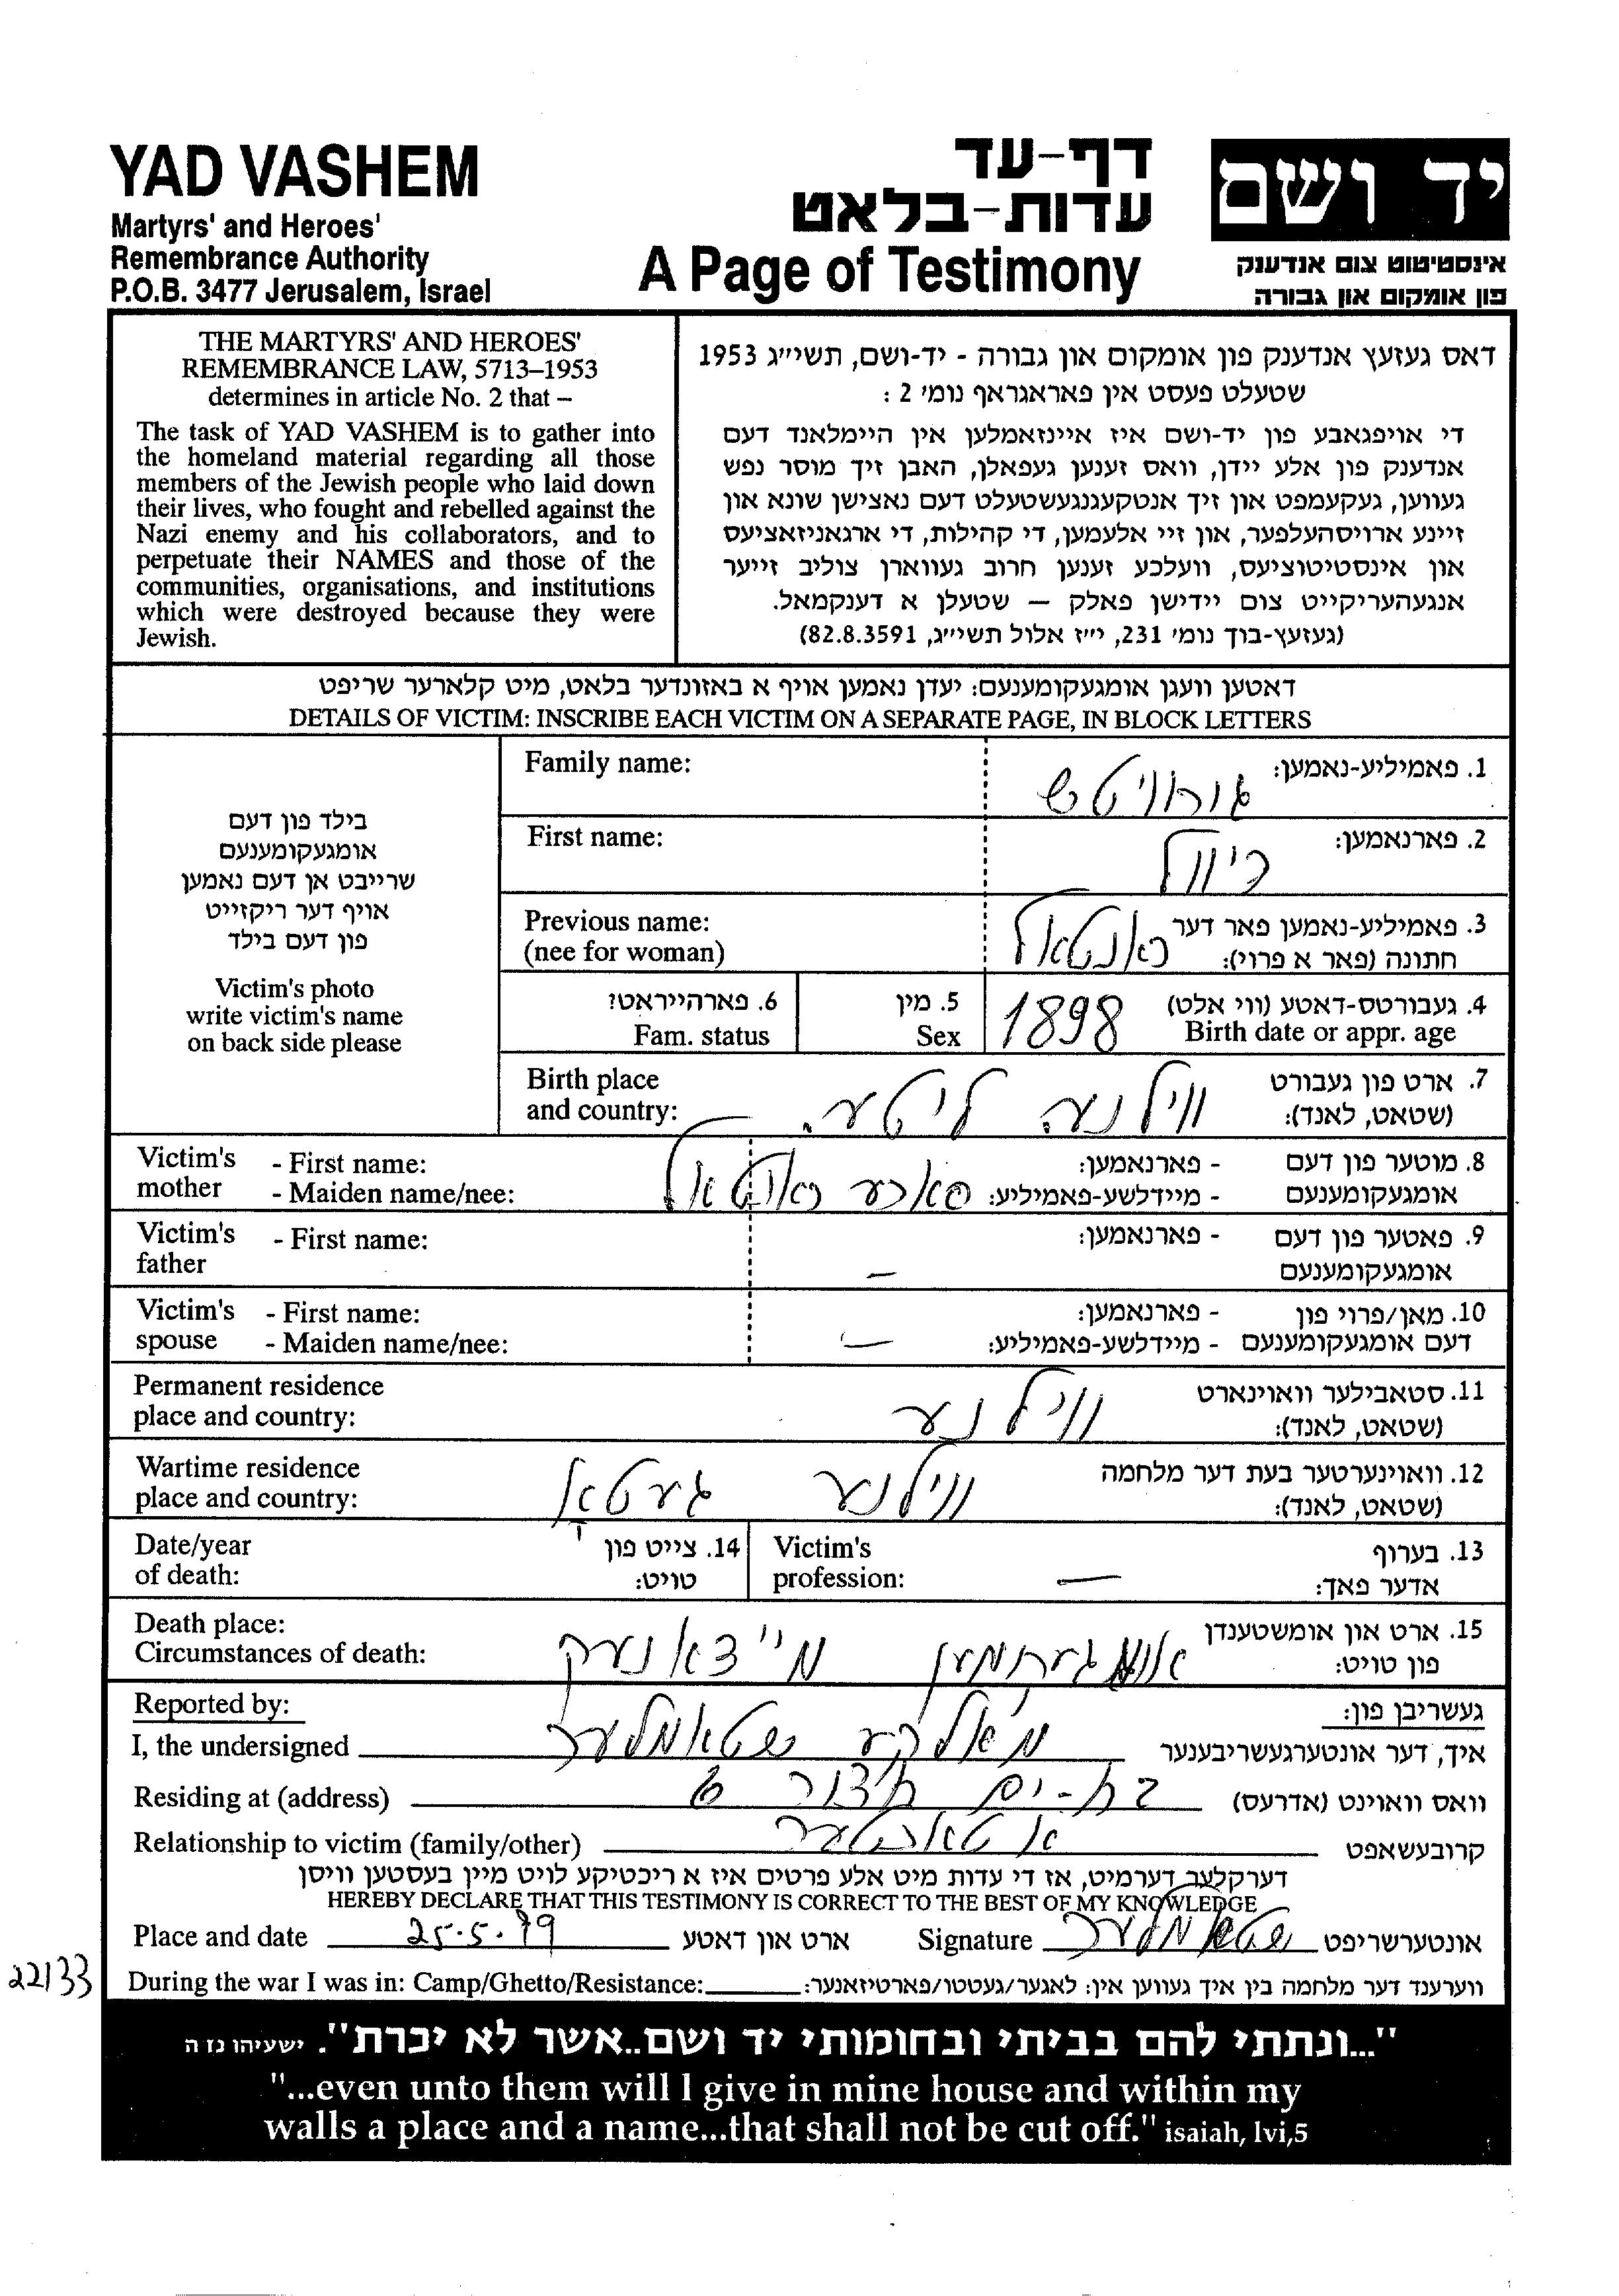 YAD VASHEM
Martyrs' and Heroes'
Remembrance Authority
P.O.B. 3477 Jerusalem, Israel
דף-עד
עדות-בלאט
A Page of Testimony
יד ושם
אינסטיטוט צום אנדענק
פון אומקום און גבורה
THE MARTYRS' AND HEROES'
REMEMBRANCE LAW, 5713–1953
determines in article No. 2 that –
The task of YAD VASHEM is to gather into
the homeland material regarding all those
members of the Jewish people who laid down
their lives, who fought and rebelled against the
Nazi enemy and his collaborators, and to
perpetuate their NAMES and those of the
communities, organisations, and institutions
which were destroyed because they were
Jewish.
דאס געזעץ אנדענק פון אומקום און גבורה - יד-ושם, תשי״ג 1953
שטעלט פעסט אין פאראגראף נומ׳ 2 :
די אויפגאבע פון יד-ושם איז איינזאמלען אין היימלאנד דעם
אנדענק פון אלע יידן, וואס זענען געפאלן, האבן זיך מוסר נפש
געווען, געקעמפט און זיך אנטקעגנגעשטעלט דעם נאצישן שונא און
זיינע ארויסהעלפער, און זיי אלעמען, די קהילות, די ארגאניזאציעס
און אינסטיטוציעס, וועלכע זענען חרוב געווארן צוליב זייער
אנגעהעריקייט צום יידישן פאלק — שטעלן א דענקמאל.
(געזעץ-בוך נומ׳ 231, י״ז אלול תשי״ג, 82.8.3591)
דאטען וועגן אומגעקומענעם: יעדן נאמען אויף א באזונדער בלאט, מיט קלארער שריפט
DETAILS OF VICTIM: INSCRIBE EACH VICTIM ON A SEPARATE PAGE, IN BLOCK LETTERS
בילד פון דעם
אומגעקומענעם
שרייבט אן דעם נאמען
אויף דער ריקזייט
פון דעם בילד
Victim's photo
write victim's name
on back side please
Family name: גורוויטש 1. פאמיליע-נאמען:
First name: רייוול 2. פארנאמען:
Previous name: 3. פאמיליע-נאמען פאר דער
(nee for woman) חתונה (פאר א פרוי):
6. פארהייראט? 5. מין 1898 4. געבורטס-דאטע (ווי אלט)
Fam. status Sex Birth date or appr. age
Birth place 7. ארט פון געבורט
and country: ווילנע ליטע. (שטאט, לאנד):
Victim's - First name: - פארנאמען: 8. מוטער פון דעם
mother - Maiden name/nee: - מיידלשע-פאמיליע: אומגעקומענעם
Victim's - First name: - פארנאמען: 9. פאטער פון דעם
father — אומגעקומענעם
Victim's - First name: - פארנאמען: 10. מאן/פרוי פון
spouse - Maiden name/nee: — - מיידלשע-פאמיליע: דעם אומגעקומענעם
Permanent residence 11. סטאבילער וואוינארט
place and country: ווילנע (שטאט, לאנד):
Wartime residence 12. וואוינערטער בעת דער מלחמה
place and country: ווילנער געטא (שטאט, לאנד):
Date/year 14. צייט פון Victim's 13. בערוף
of death: טויט: profession: — אדער פאך:
Death place: 15. ארט און אומשטענדן
Circumstances of death: מיידאנעק פון טויט:
Reported by: געשריבן פון:
I, the undersigned מאלקע שטאמלער איך, דער אונטערגעשריבענער
Residing at (address) בת-ים 6 וואס וואוינט (אדרעס)
Relationship to victim (family/other) א טאכטער קרובעשאפט
דערקלער דערמיט, אז די עדות מיט אלע פרטים איז א ריכטיקע לויט מיין בעסטען וויסן
HEREBY DECLARE THAT THIS TESTIMONY IS CORRECT TO THE BEST OF MY KNOWLEDGE
Place and date 25.5.99 ארט און דאטע Signature שטאמלער אונטערשריפט
22133
During the war I was in: Camp/Ghetto/Resistance: ווערענד דער מלחמה בין איך געווען אין: לאגער/געטטו/פארטיזאנער:
"...ונתתי להם בביתי ובחומותי יד ושם..אשר לא יכרת". ישעיהו נז ה
"...even unto them will I give in mine house and within my
walls a place and a name...that shall not be cut off." isaiah, lvi,5